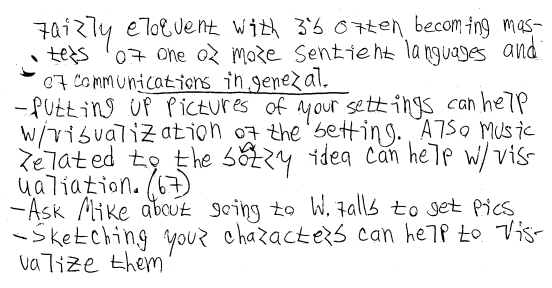 fairly eloquent with 3's often becoming mas-
ters of one or more sentient languages and
of communications in general.
-Putting up pictures of your settings can help
w/visualization of the setting. Also music
related to the sotry idea can help w/vis-
ualiation. (67)
-Ask Mike about going to W. Falls to get pics
-Sketching your characters can help to vis-
ualize them